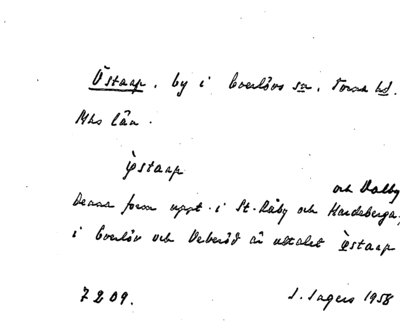 Östaap, by i Everlövs sn, Torna hd.
Mhs län.
ø̀staap
och Dalby
Denna form uppt. i St. Råby och Hardeberga,
i Everlöv och Veberöd är uttalet ø̀staap
7209. I. Ingers 1958